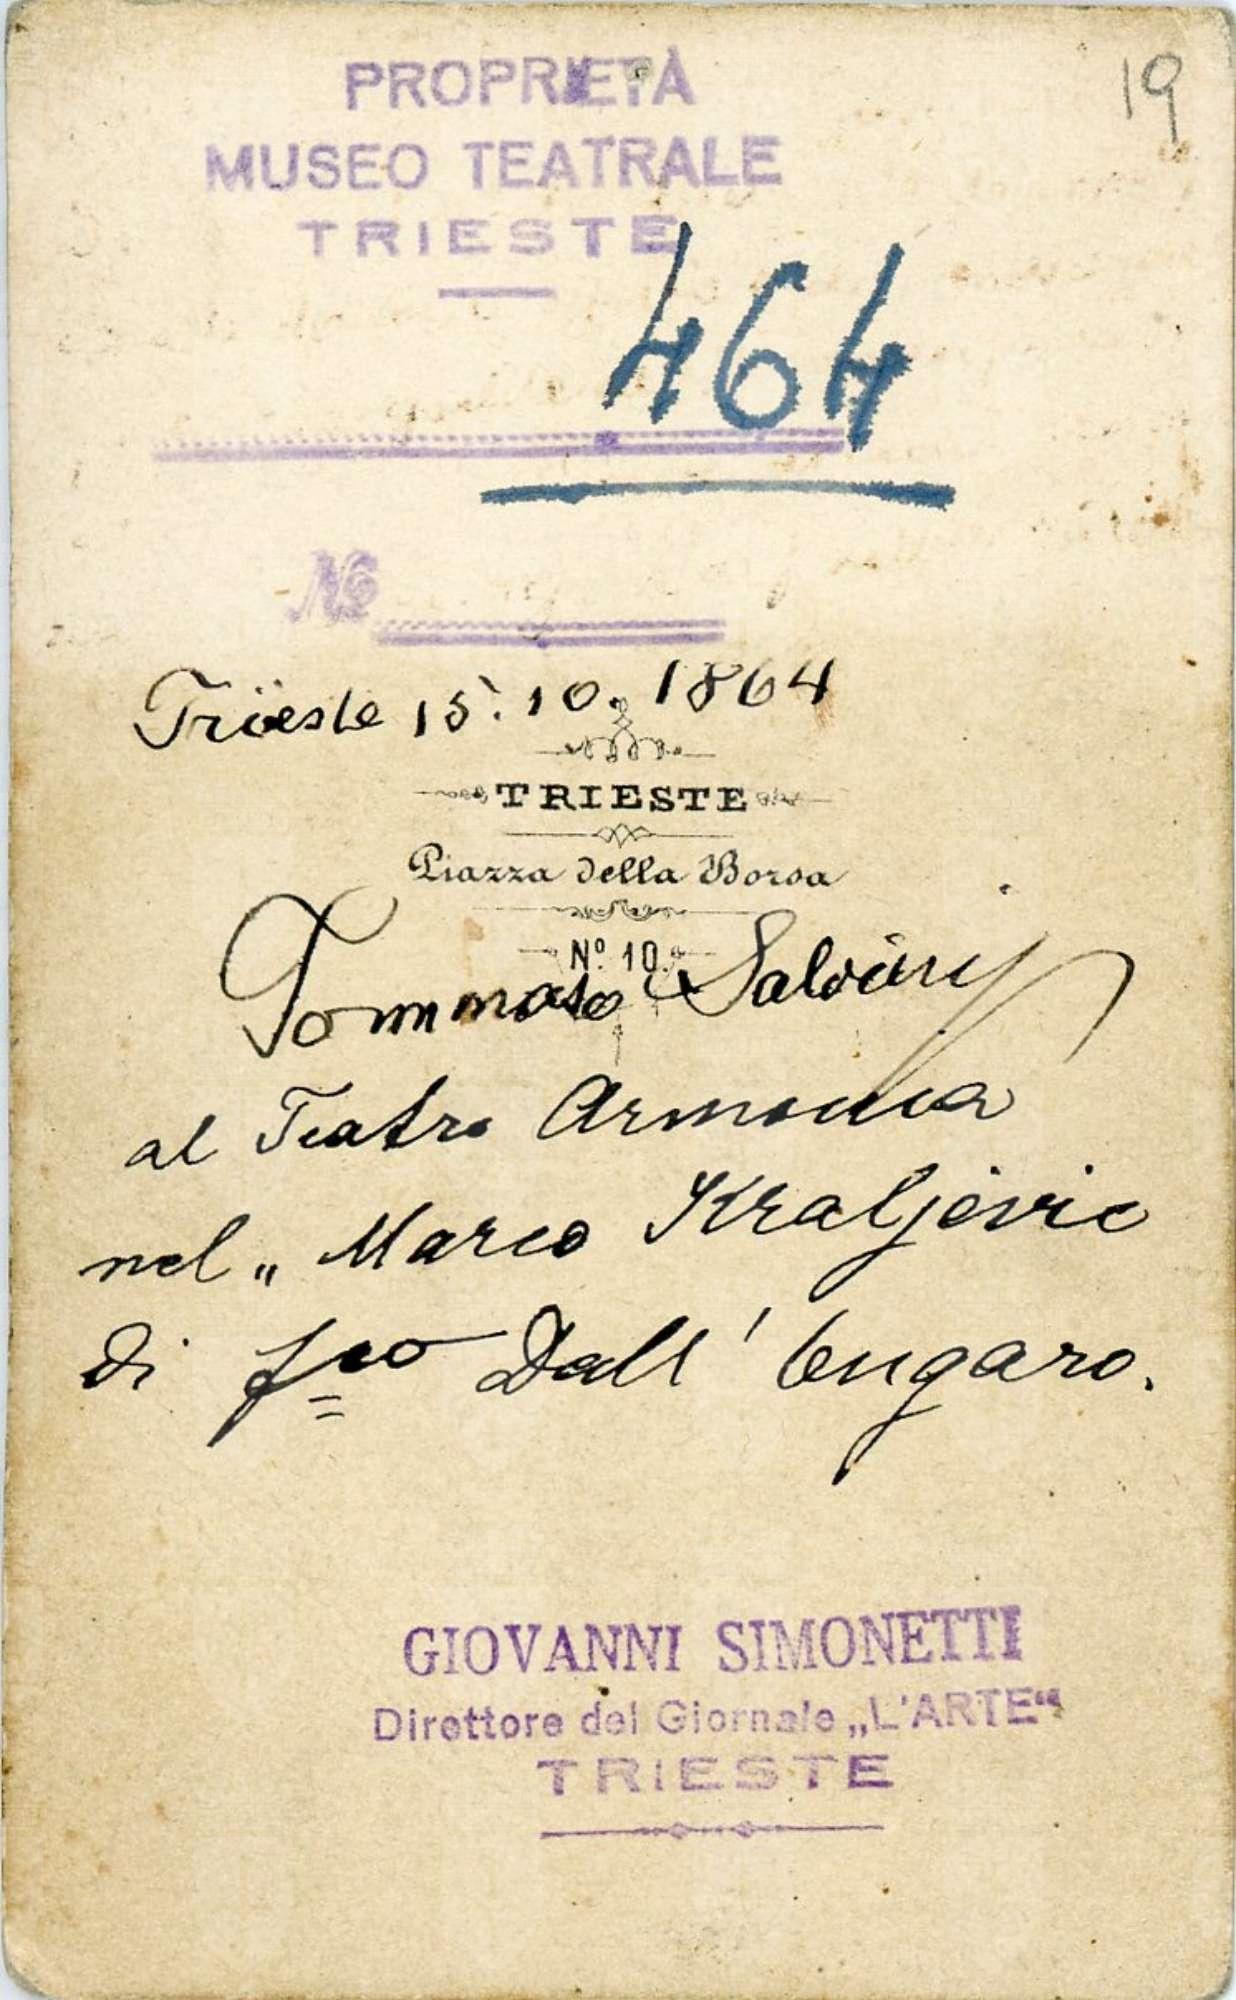 PROPRIETÀ
19
MUSEO TEATRALE
TRIESTE
464
No
Trieste 15. 10. 1864
TRIESTE
Piazza della Borsa
Nº 10.
Tommaso Salvini
al Teatro Armonia
nel „ Marco Kraljevic
di fco Dall' Ongaro.
GIOVANNI SIMONETTI
Direttore del Giornale „L'ARTE“
TRIESTE